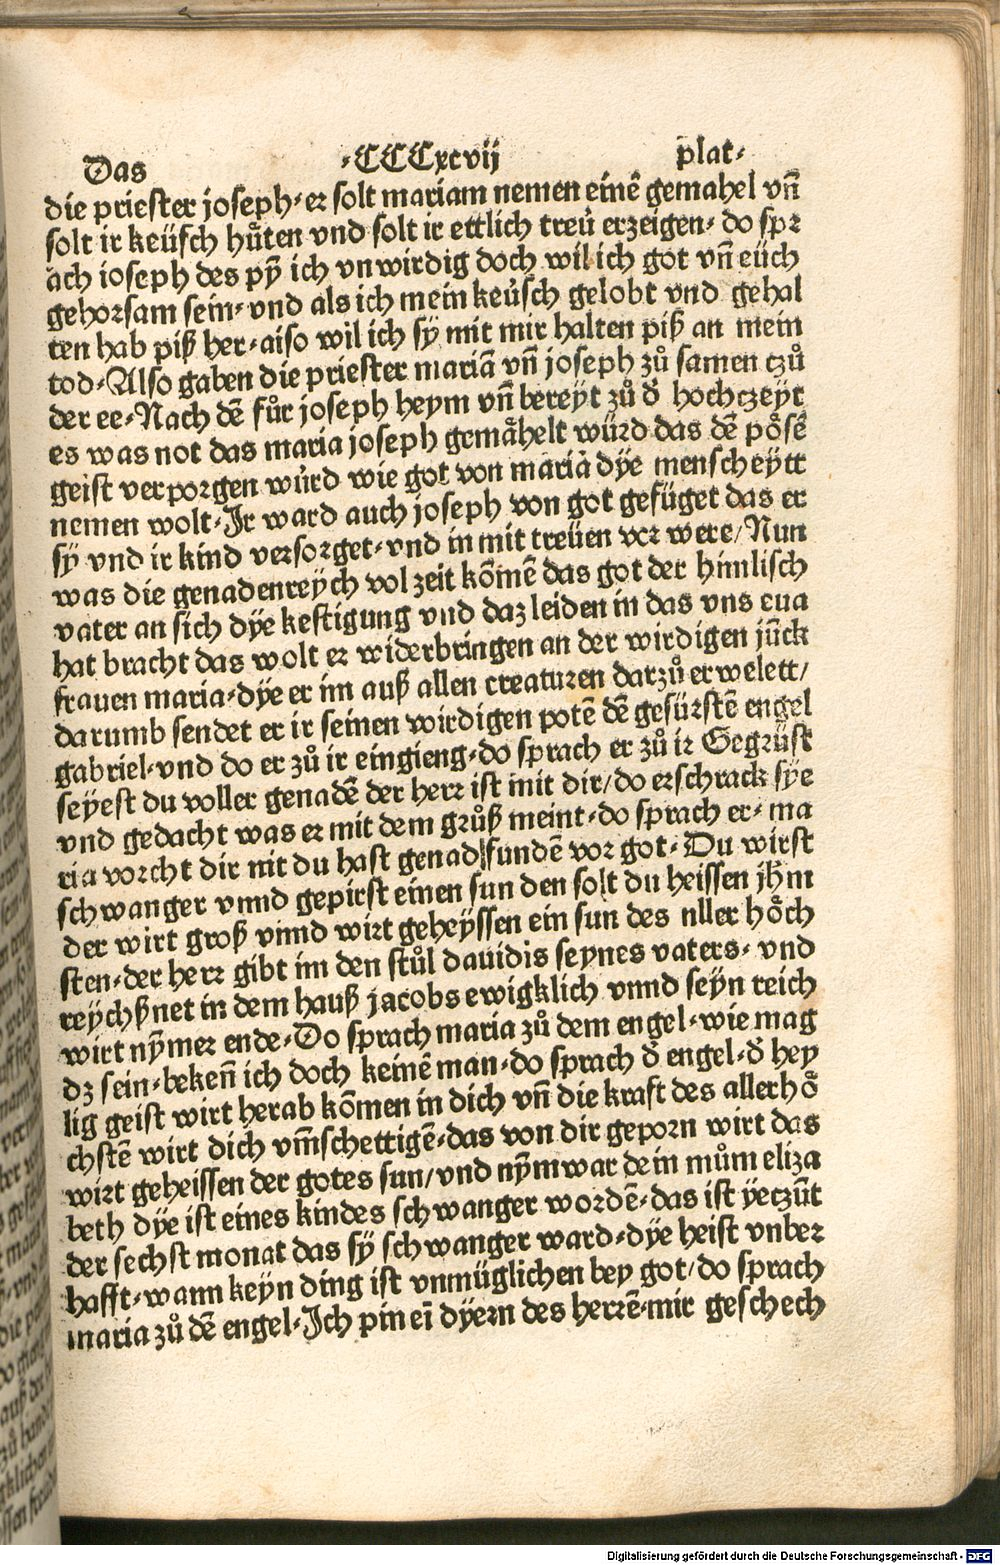 Das ·CCCxcvij plat·
die priester joseph· er solt mariam nemen einē gemahel vn̄
solt ir keüsch hůten vnd solt ir ettlich treü erzeigen· do spr
ach ioseph des py̅ ich vnwirdig doch wil ich got vn̄ eüch
gehorsam sein· vnd als ich mein keüsch gelobt vnd gehal
ten hab piß her· also wil ich sÿ mit mir halten piß an mein
tod· Also gaben die priester mariā vn̄ joseph zů samen tzů
der ee· Nach dē fůr joseph heym vn̄ bereyt zů d̄ hochczeyt
es was not das maria joseph gemåhelt würd das dē pösē
geist verporgen würd wie got von maria dÿe menscheytt
nemen wolt· Jr ward auch joseph von got gefüget das er
sÿ vnd ir kind versorget· vnd in mit treüen vor were/ Nun
was die genadenreÿch vol zeit kōmē das got der himlisch
vater an sich dÿe kestigung vnd daz leiden in das vns eua
hat bracht das wolt er widerbringen an der wirdigen jūck
frauen maria· dÿe er im auß allen creaturen darzů erwelett/
darumb sendet er ir seinen wirdigen potē dē gefürstē engel
gabriel· vnd do er zů ir eingieng· do sprach er zů ir Gegrüst
seyest du voller genadē der herr ist mit dir/ do erschrack sÿe
vnd gedacht was er mit dem grůß meint· do sprach er· ma
ria vorcht dir nit du hast genad fundē vor got· Du wirst
schwanger vnnd gepirst einen sun den solt du heissen jħm
der wirt groß vnnd wirt geheÿssen ein sun des aller höch
sten· der herr gibt im den stůl dauidis seynes vaters· vnd
reÿchßnet in dem hauß jacobs ewigklich vnnd seÿn reich
wirt nȳmer ende· Do sprach maria zů dem engel· wie mag
dz sein· beken̄ ich doch keinē man· do sprach d̄ engel· d̄ hey
lig geist wirt herab kōmen in dich vn̄ die kraft des allerhö
chstē wirt dich vm̄schettigē· das von dir geporn wirt das
wirt geheissen der gotes sun/ vnd nȳm war dein mům eliza
beth dÿe ist eines kindes schwanger wordē· das ist ÿetzūt
der sechst monat das sÿ schwanger ward· dÿe heist vnber
hafft· wann keÿn ding ist vnmüglichen bey got/ do sprach
maria zů dē engel· Jch pin eī dÿern des herrē· mir geschech
Digitalisierung gefördert durch die Deutsche Forschungsgemeinschaft - DFG